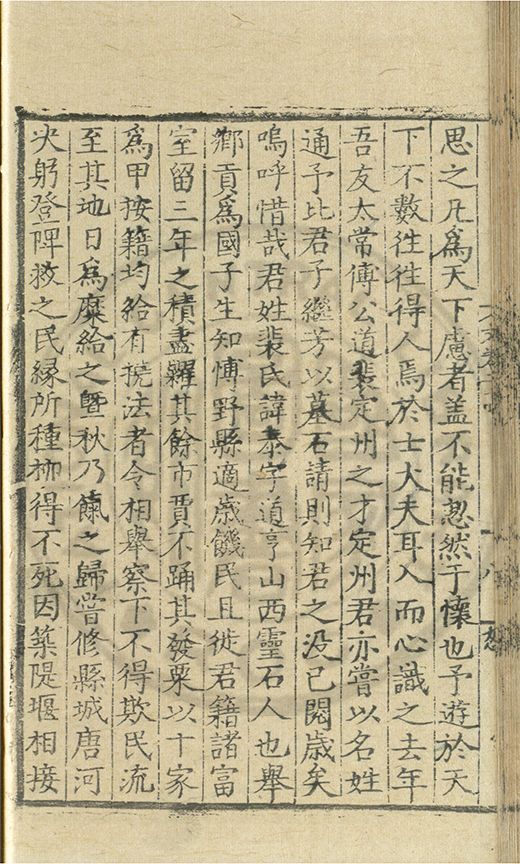 思之凡爲天下慮者盖不能恝然于懷也予遊於天
下不數徃徃得人焉於士大夫耳入而心識之去年
吾友太常傅公道裴定州之才定州君亦嘗以名姓
通予比君子繼芳以墓石請則知君之没已閱歳矣
嗚呼惜哉君姓裴氏諱泰字道亨山西靈石人也舉
鄉貢爲國子生知博野縣適歳饑民且徙君籍諸富
室留三年之積盡糴其餘市賈不踊其發粟以十家
爲甲按籍均給有撓法者令相舉察下不得欺民流
至其地日爲糜給之曁秋乃餼之歸嘗修縣城唐河
决躬登陴救之民緣所種栁得不死因築隄堰相接